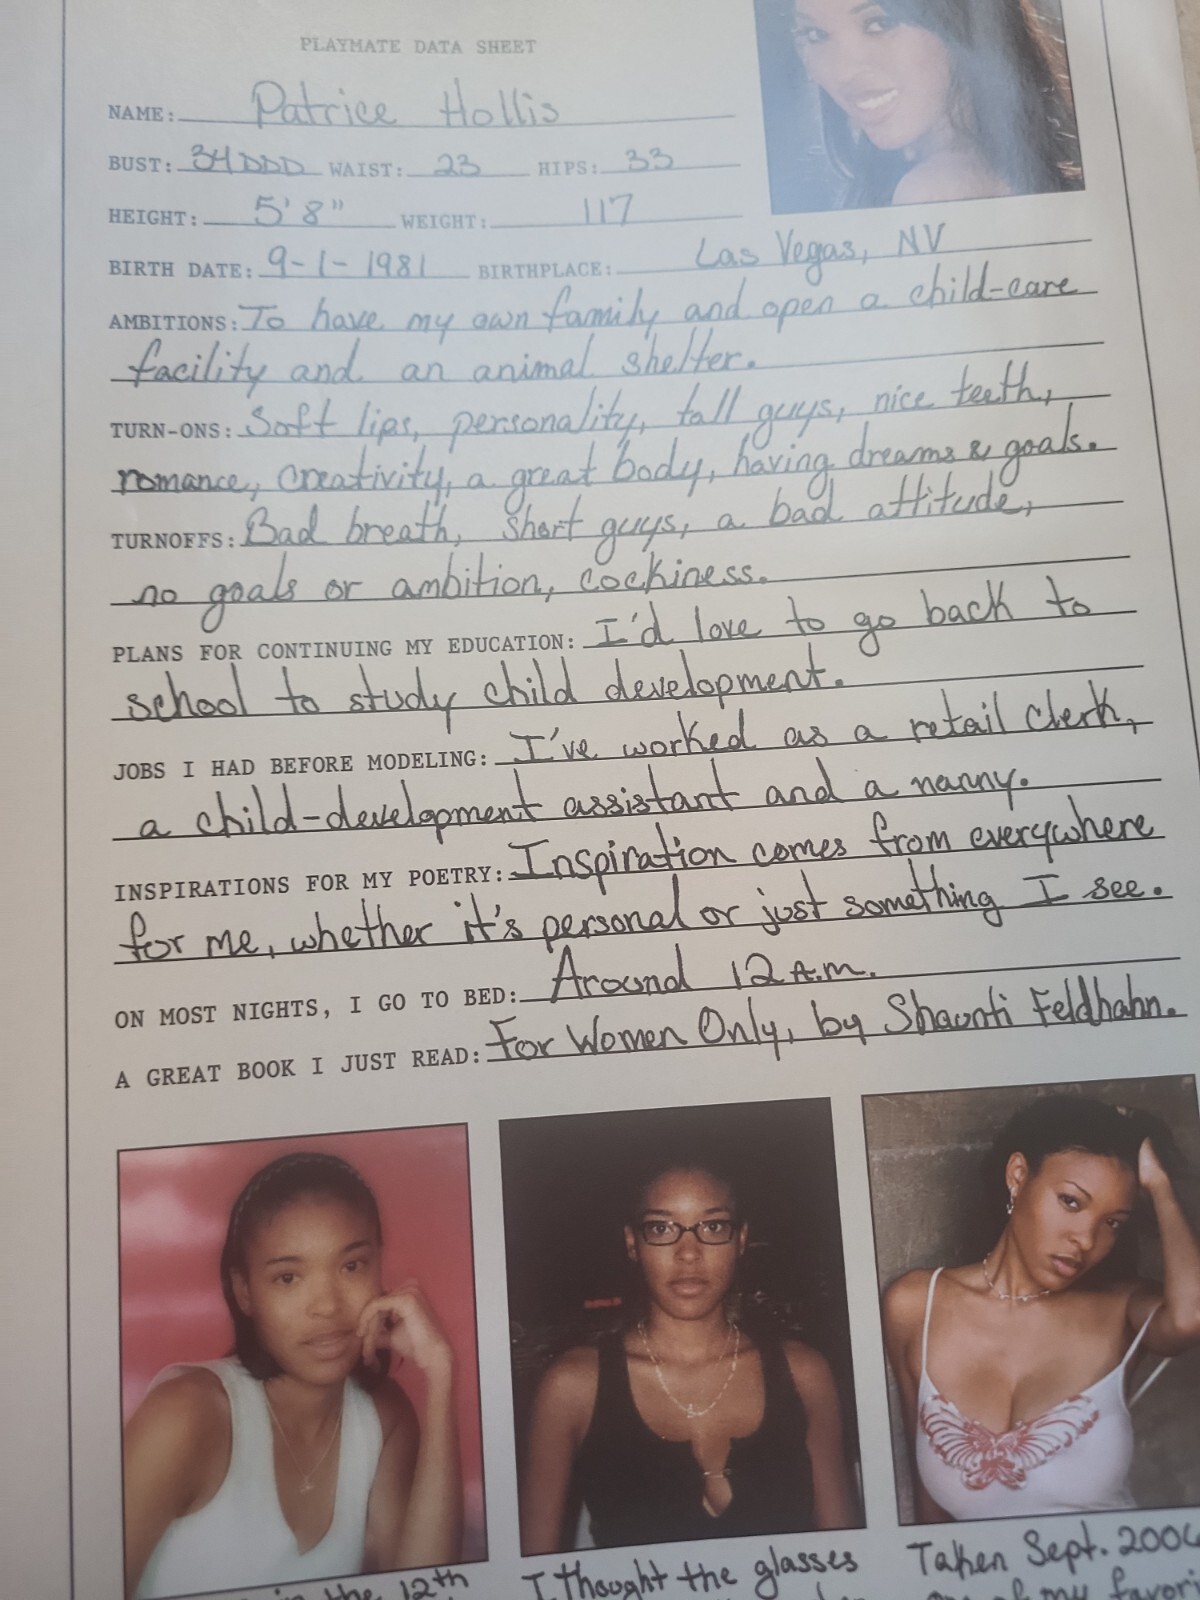 PLAYMATE DATA SHEET
NAME: Patrice Hollis
BUST: 34DDD WAIST: 23 HIPS: 33
HEIGHT: 5'8" WEIGHT: 117
BIRTH DATE: 9-1-1981 BIRTHPLACE: Las Vegas, NV
AMBITIONS: To have my own family and open a child-care
facility and an animal shelter.
TURN-ONS: Soft lips, personality, tall guys, nice teeth,
romance, creativity, a great body, having dreams & goals.
TURNOFFS: Bad breath, short guys, a bad attitude,
no goals or ambition, cockiness.
PLANS FOR CONTINUING MY EDUCATION: I'd love to go back to
school to study child development.
JOBS I HAD BEFORE MODELING: I've worked as a retail clerk,
a child-development assistant and a nanny.
INSPIRATIONS FOR MY POETRY: Inspiration comes from everywhere
for me, whether it's personal or just something I see.
ON MOST NIGHTS, I GO TO BED: Around 12 A.M.
A GREAT BOOK I JUST READ: For Women Only, by Shaunti Feldhahn.
in the 12th
I thought the glasses
Taken Sept. 2006
of my favori